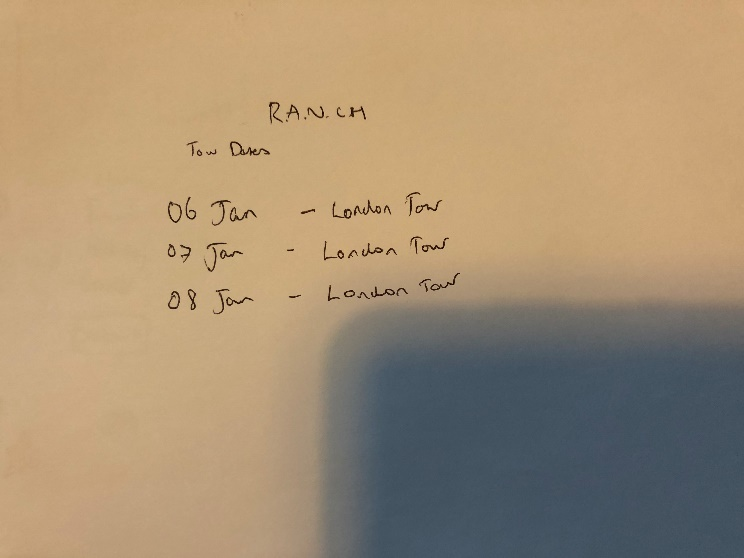 R.A.N.CH
Tour Dates
06 Jan - London Tour
07 Jan - London Tour
08 Jan - London Tour